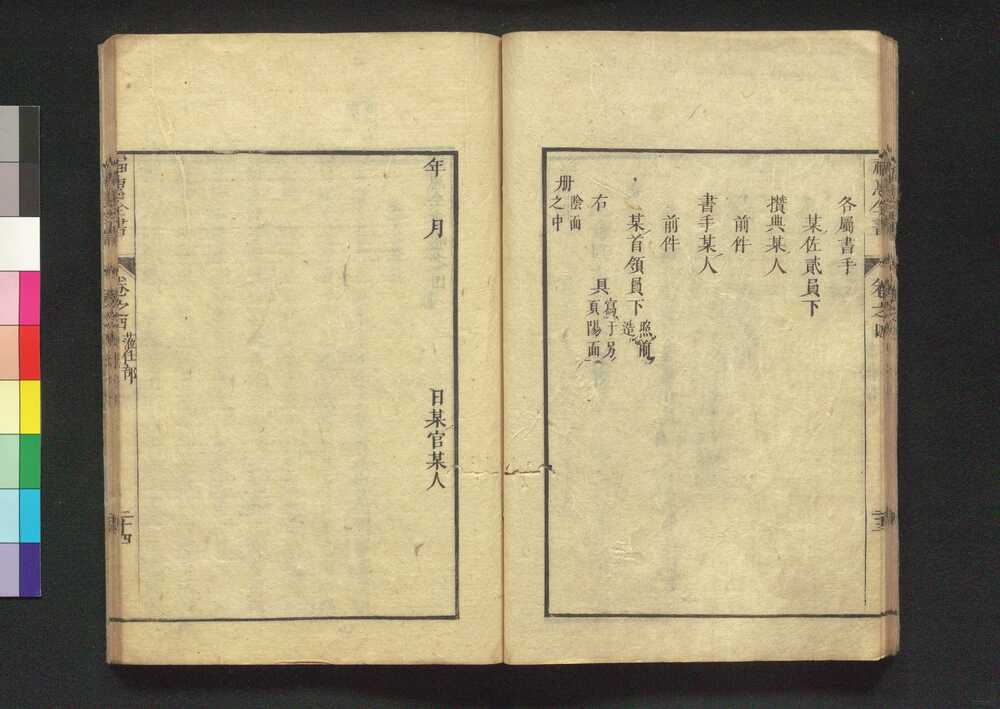 各屬書手
某佐貳員下
攢典某人
前件
書手某人
前件
某首領員下照前造
右具寫于另頁陽面
册之中陰面
年 月 日某官某人
福惠全書 卷之四 二十三
福惠全書 卷之四 蒞任部 二十四